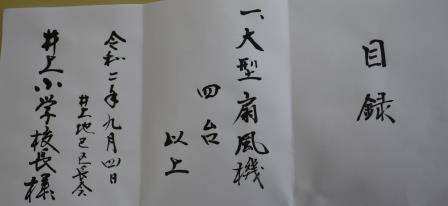 目録
一、大型扇風機
四台
以上
令和二年九月四日
井上地区区長会
井上小学校長様